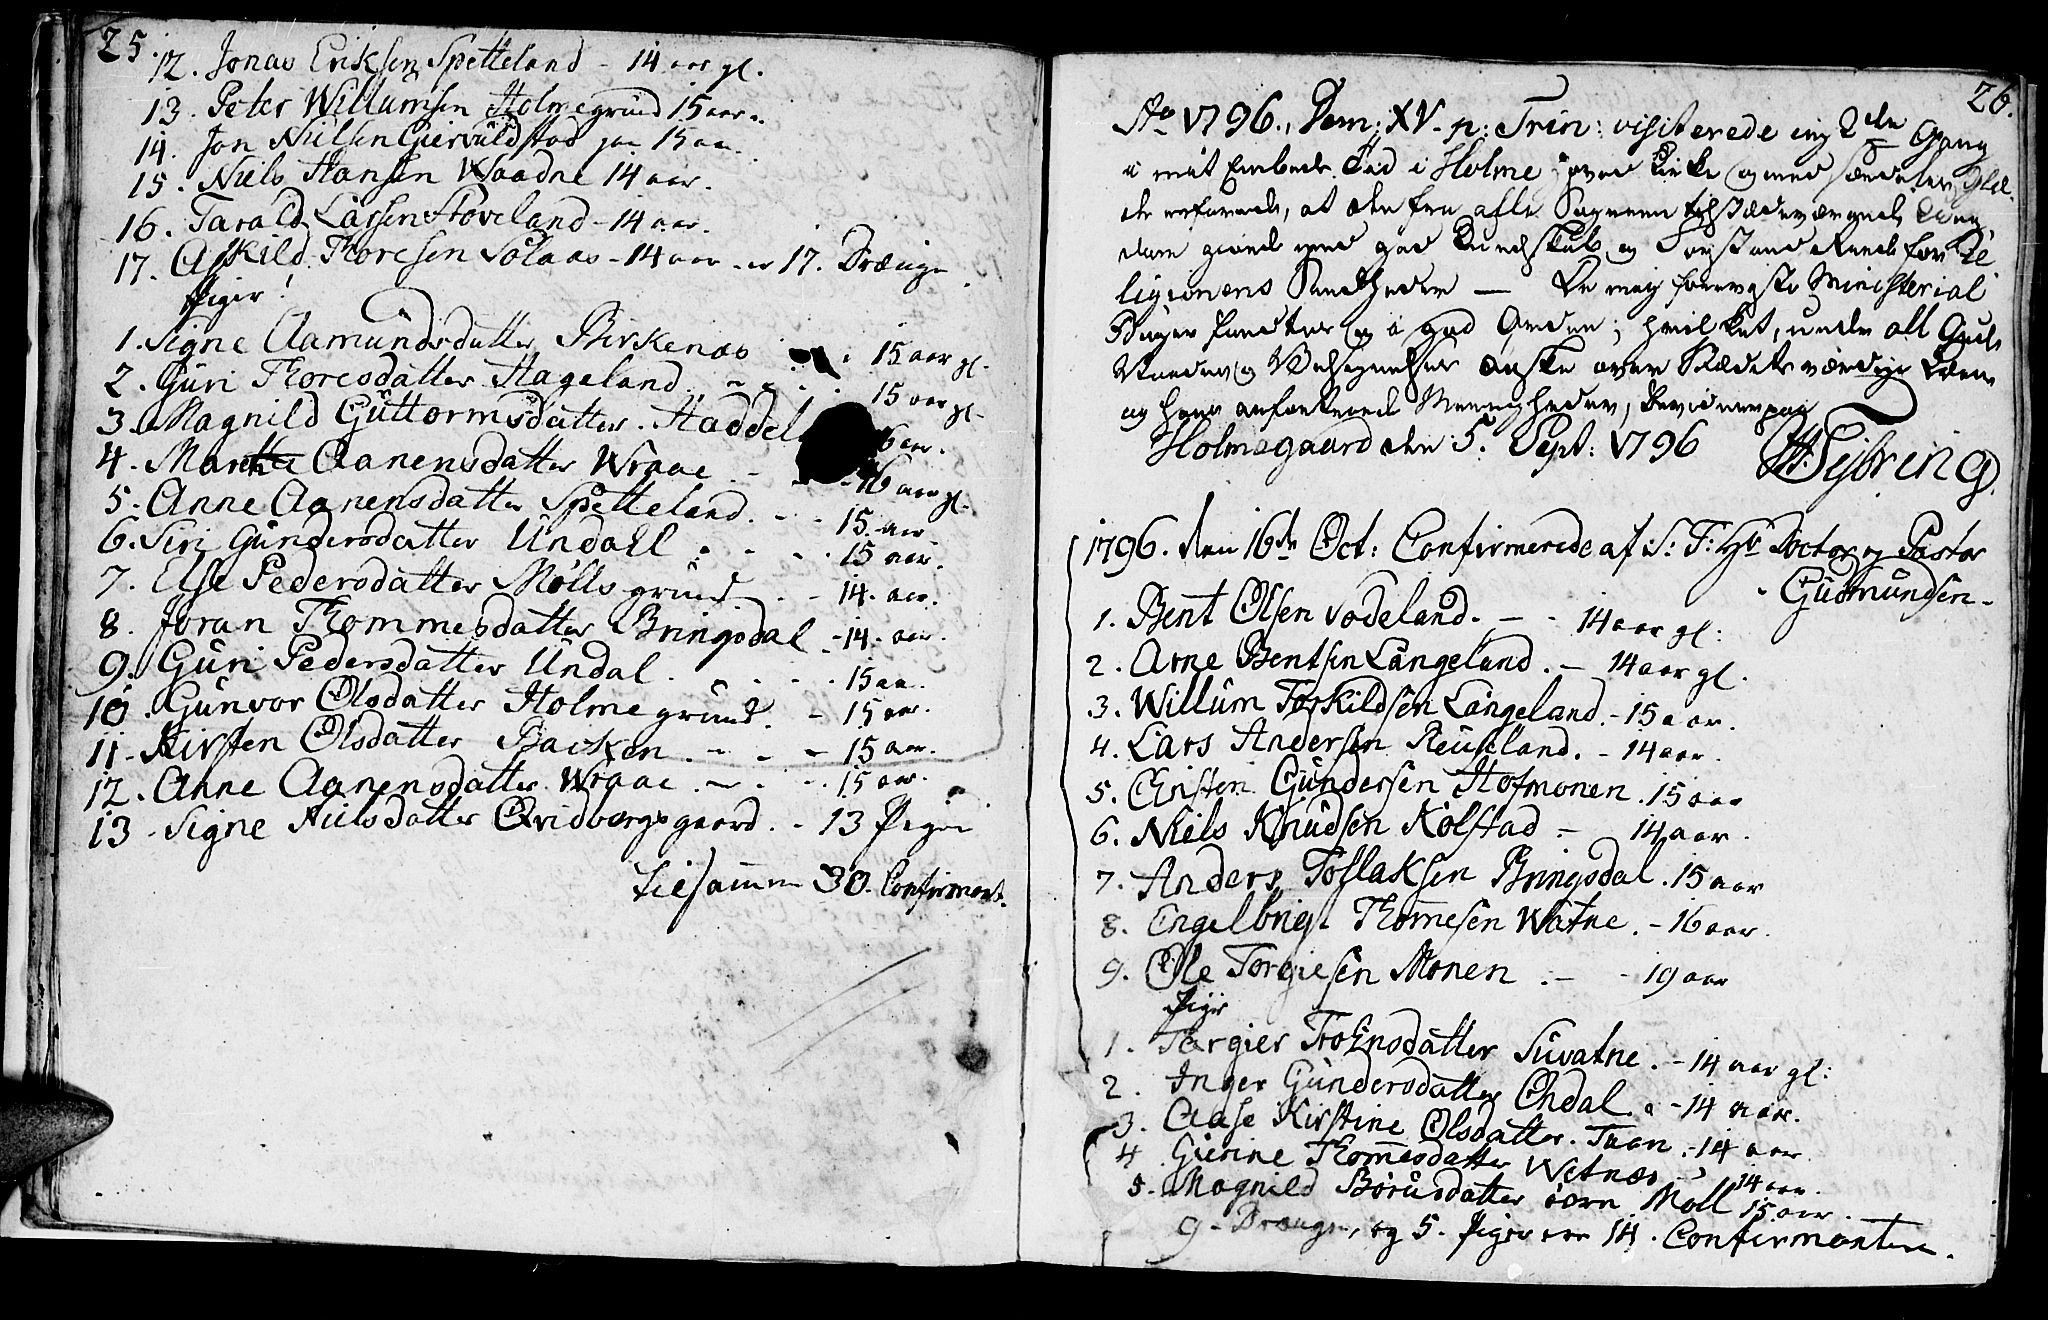 25.
12. Jonas Eriksen Spetteland - 14 aar gl.
13. Peter Willumsen Holmegrund 15 aar.
14. Jon Nielsen Giervuldstad 15 aar.
15. Niels Hansen Waadne 14 aar.
16. Tarald Larsen Stoveland - 14 aar.
17. Askild Thoresen Solaas - 14 aar - er 17. Drænge.
Piger!
1. Signe Aamundsdatter Birkenæs 15 aar gl.
2. Guri Thoresdatter Hageland. 15 aar gl.
3. Magnild Guttormsdatter. Haddel 16 aar.
4. Marthe Aanensdatter Wraae - 16 aar gl.
5. Anne Aanensdatter Spetteland. - 15 aar.
6. Siri Gundersdatter Undall. 15 aar.
7. Else Pedersdatter Mølls grund. - 14. aar.
8. Joran Thommesdatter Bringsdal - 14. aar.
9. Guri Pedersdatter Undal. 15 aar.
10. Gunvor Olsdatter Holme grund. - 15 aar.
11. Kirsten Olsdatter Backen. - - 15 aar.
12. Anne Aanensdatter Wraae. - - 15 aar.
13. Signe Nielsdatter Qvidbergs gaard. - 13 Piger
tilsammen 30. Confirmant.
26.
Ao 1796., Dom: XV. p: Trin: visiterede jeg 2den Gang
i mit Embeds Tid i Holme Hoved Kirke og med særdeles Glæ-
de erfarede, at den fra alle Sognene tilstædeværende Ung
dom giorde reede god Kundskab og Forstand Reede for Re
ligionens Sandheder — De mig foreviste Ministerial
Bøger fandtes og i god Orden; hvilket, under all Guds
Naades og Velsignelses Ønske over Stædets værdige Lærer
og hans anfortroede Meenigheder, bevidnes paa
Holmegaard den 5. Sept: 1796 Sejbring.
1796. den 16de Oct: Confirmerede af S: T: Hr Doctor og Pastor
Gudmundsen -
1. Bent Olsen Vodeland. - - 14 aar gl:
2. Arne Bentsen Langeland. - 14 aar gl.
3. Willum Torkildsen Langeland. - 15 aar.
4. Lars Andersen Reuseland. - 14 aar.
5. Christen Gundersen Hofmonen. 15 aar
6. Niels Knudsen Kolstad - 14 aar.
7. Anders Tollaksen Bringsdal. 15 aar
8. Engelbrigt Thomesen Watne. - 16 aar.
9. Ole Torgiesen Monen. - - 19 aar
Piger
1. Torgier Trolznsdatter Suvatne. - 14 aar gl:
2. Inger Gundersdatter Øhdal. - 14 aar.
3. Aase Kirstine Olsdatter. Taan. - 14 aar.
4 Gierine Thomesdatter Wetnæs - 14 aar.
5. Magnild Børusdatter øern Møll 15 aar.
9. Drænge, og 5. Piger er 14. Confirmantere.